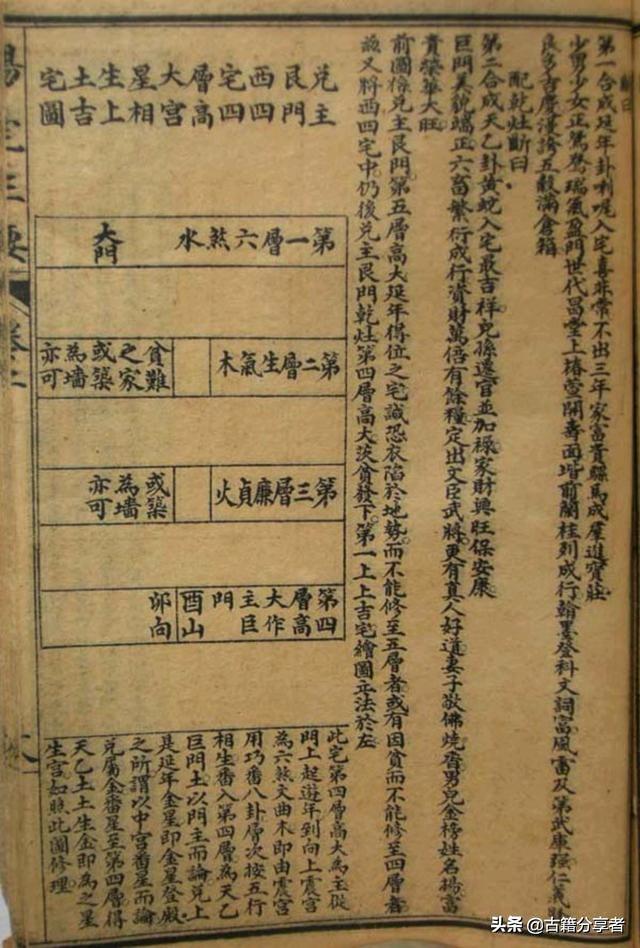 曰
第一合成延年卦喇叭入宅喜非常不出三年家富貴騾馬成羣進寶莊
少男少女正鴛鴦瑞氣盈門世代昌堂上椿萱開壽面堦前蘭桂列成行翰墨登科文詞富風雷及第武庫强仁義
良多吉慶漫誇五穀滿倉箱
配乾灶斷曰
第二合成天乙卦黄蛇入宅最吉祥兒孫還官並加祿家財興旺保安康
巨門美貌端正六畜繁衍成行資財萬倍有餘糧定出文臣武將更有真人好道妻子敬佛燒香男兒金榜姓名揚富
貴榮華大旺
前圖係兌主艮門第五層高大延年得位之宅誠恐衣陷於地勢而不能修至五層者或有因貧而不能修至四層者
故又將西四宅中仍後兌主艮門乾灶第四層高大茨貧發下第一上上吉宅繪圖立法於左
兌主
艮門
西四
宅四
層高
大宮
星相
生上
土吉
宅圖
第一層六煞水
大門
第二層生氣木
貧難之家或築為墻亦可
第三層廉貞火
或築為墻亦可
第四層高大作主巨門
酉山
卯向
此宅第四層高大為主從
門上起遊年到向上震宮
為六煞文曲木即由震宮
用巧番八卦層次按五行
相生番入第四層為天乙
巨門土以門主而論兌上
是延年金星即金星登殿
之所謂以中宮番星而論
兌屬金番星至第四層得
天乙土土生金即為之星
生宮如照此圖修理
陽宅三要
卷二
头条 @古籍分享者